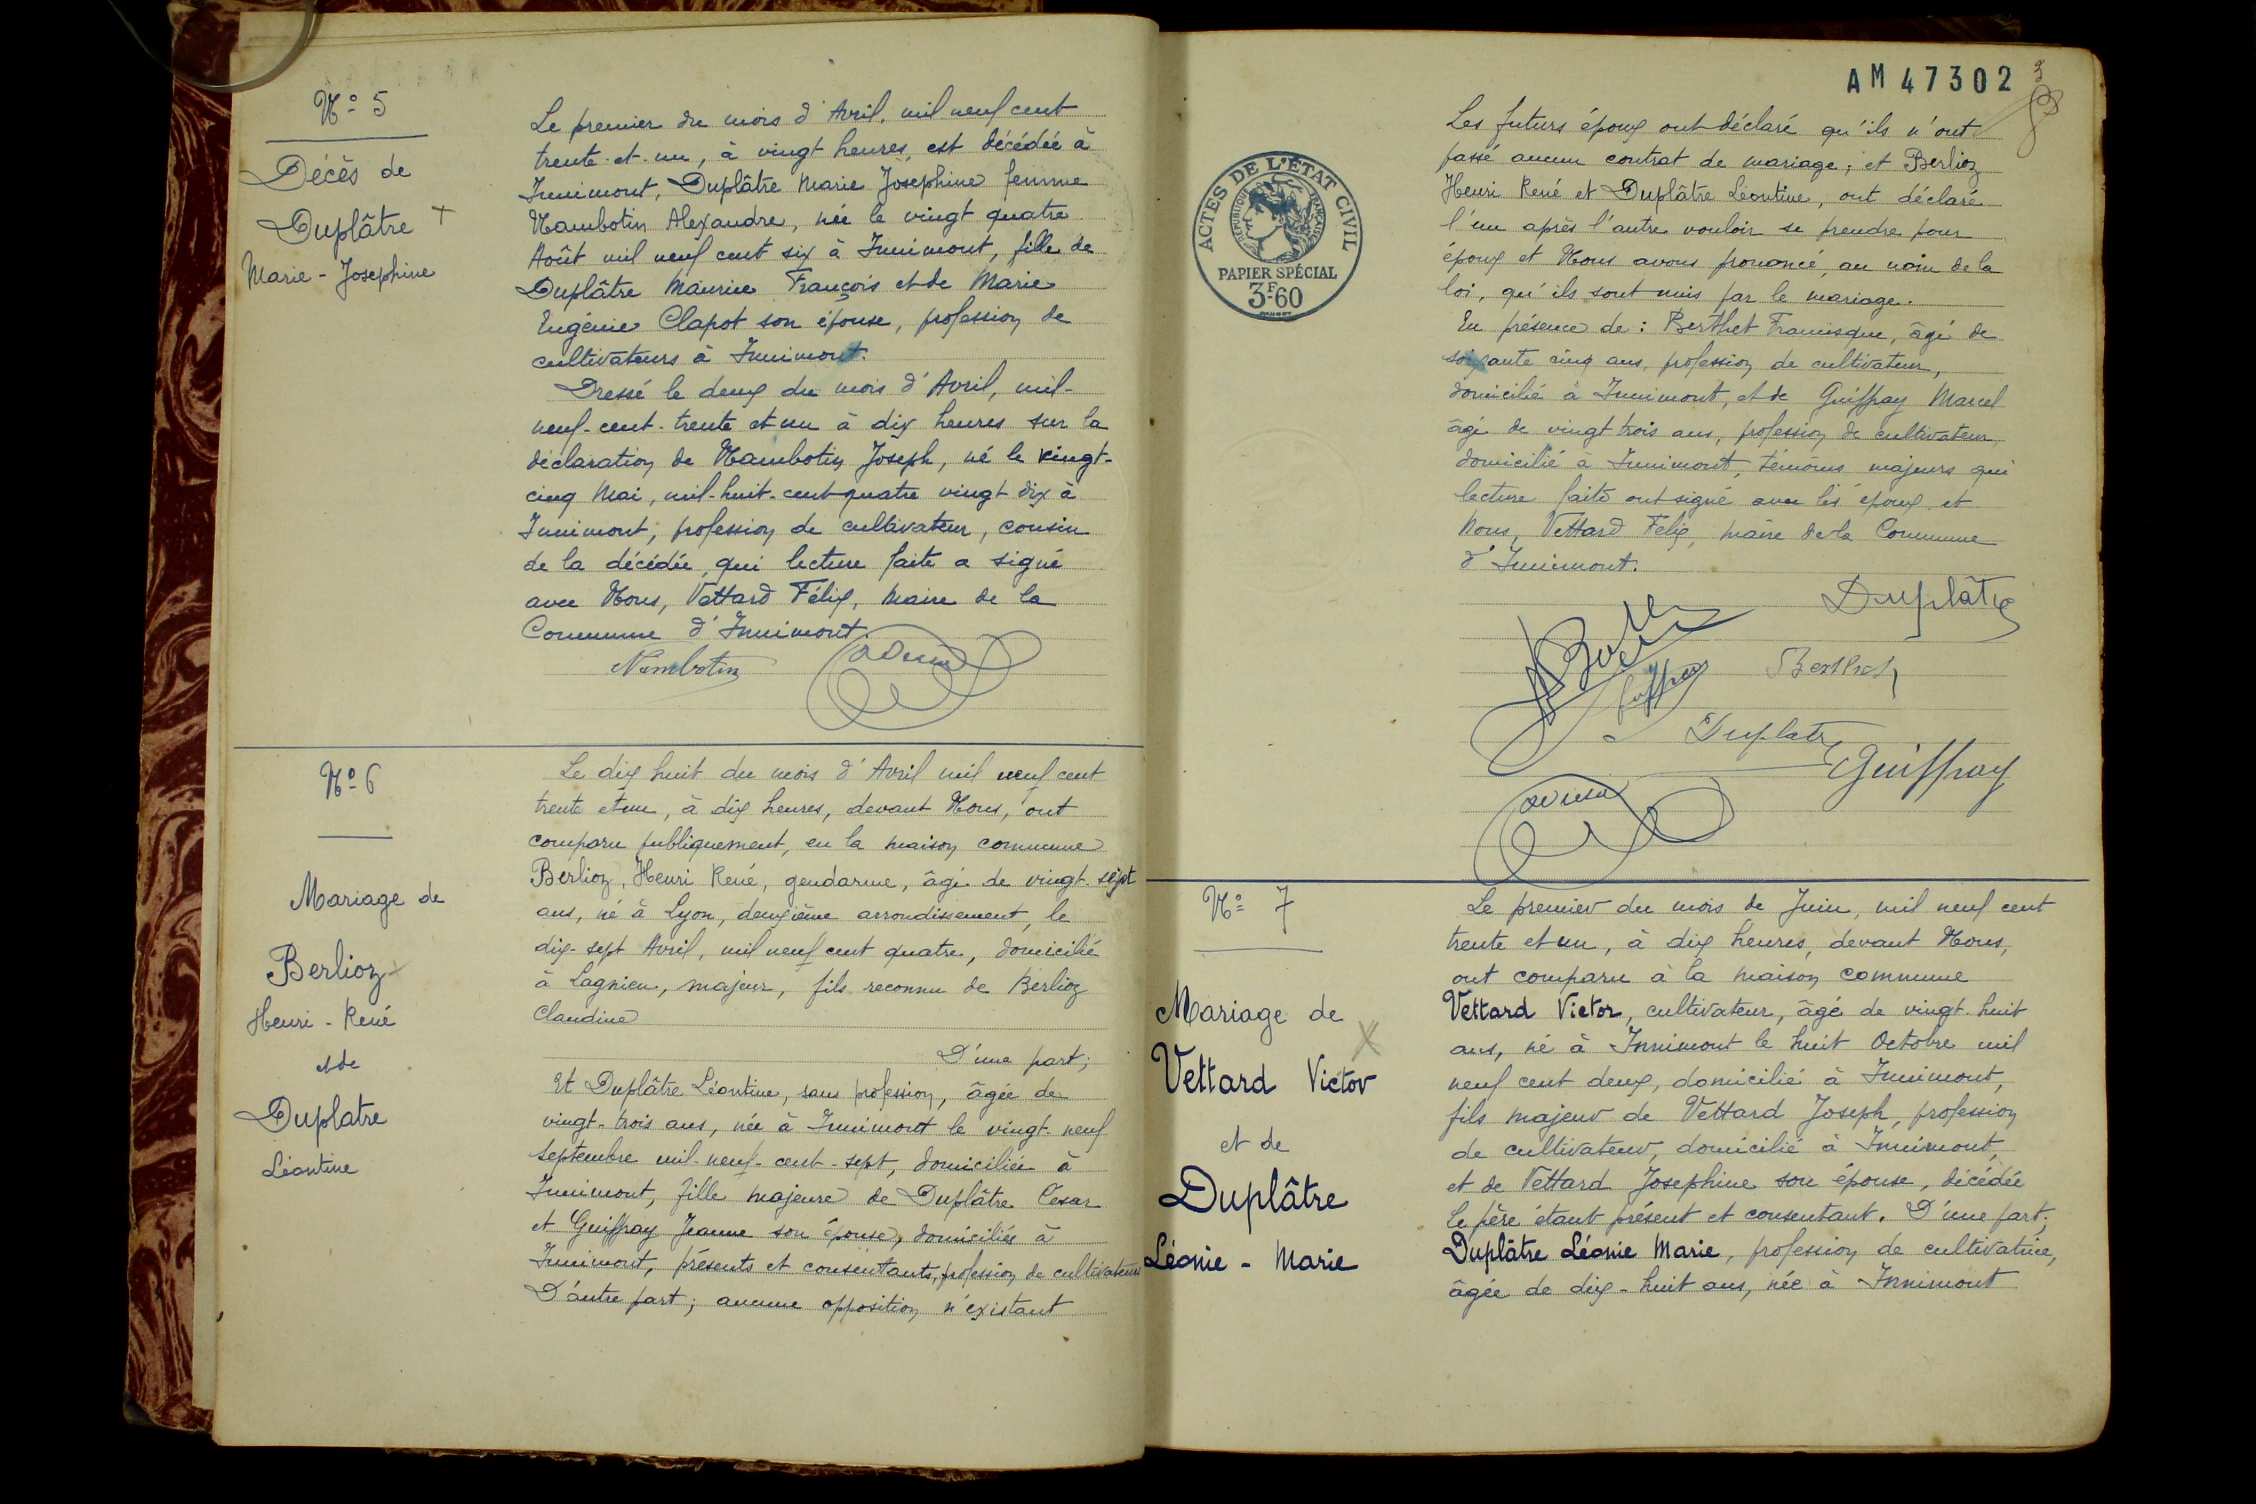 N° 5
Décès de
Duplâtre +
Marie - Josephine
Le premier du mois d'Avril, mil neuf cent
trente-et-un, à vingt heures, est décédée à
Innimont, Duplâtre Marie Josephine femme
Nambotin Alexandre, née le vingt quatre
Août mil neuf cent six à Innimont, fille de
Duplâtre Maurice François et de Marie
Eugénie Clapot son épouse, profession de
cultivateurs à Innimont.
Dressé le deux du mois d'Avril, mil-
neuf-cent-trente et un à dix heures sur la
déclaration de Nambotin Joseph, né le vingt-
cinq Mai, mil-huit-cent-quatre vingt dix à
Innimont, profession de cultivateur, cousin
de la décédée, qui lecture faite a signé
avec Nous, Vettard Félix, Maire de la
Commune d'Innimont.
Nambotin
N° 6
Mariage de
Berlioz
Henri - René
et de
Duplatre
Léontine
Le dix huit du mois d'Avril mil neuf cent
trente et un, à dix heures, devant Nous, ont
comparu publiquement, en la maison commune
Berlioz, Henri René, gendarme, âgé de vingt-sept
ans, né à Lyon, deuxième arrondissement, le
dix-sept Avril, mil neuf cent quatre, domicilié
à Lagnieu, majeur, fils reconnu de Berlioz
Claudine
D'une part;
Et Duplâtre Léontine, sans profession, âgée de
vingt-trois ans, née à Innimont le vingt-neuf
Septembre mil-neuf-cent-sept, domiciliée à
Innimont, fille majeure de Duplâtre César
et Guiffray Jeanne son épouse, domiciliés à
Innimont, présents et consentants, profession de cultivateurs
D'autre part; aucune opposition n'existant
AM 47302
3
ACTES DE L'ÉTAT CIVIL
RÉPUBLIQUE FRANÇAISE
PAPIER SPÉCIAL
3F.60
Les futurs époux ont déclaré qu'ils n'ont
passé aucun contrat de mariage; et Berlioz
Henri René et Duplâtre Léontine, ont déclaré
l'un après l'autre vouloir se prendre pour
époux et Nous avons prononcé, au nom de la
loi, qu'ils sont unis par le mariage.
En présence de: Berthet Francisque, âgé de
soixante cinq ans, profession de cultivateur,
domicilié à Innimont, et de Guiffray Marcel
âgé de vingt trois ans, profession de cultivateur
domicilié à Innimont, témoins majeurs qui
lecture faite ont signé avec les époux et
Nous, Vettard Félix, maire de la Commune
d'Innimont.
Duplâtre
Guiffray
Berthet
Duplatre
Guiffray
N° 7
Mariage de
Vettard Victor
et de
Duplâtre
Léonie - Marie
Le premier du mois de Juin, mil neuf cent
trente et un, à dix heures, devant Nous,
ont comparu à la maison commune
Vettard Victor, cultivateur, âgé de vingt-huit
ans, né à Innimont le huit Octobre mil
neuf cent deux, domicilié à Innimont,
fils majeur de Vettard Joseph, profession
de cultivateur, domicilié à Innimont,
et de Vettard Josephine son épouse, décédée
le père étant présent et consentant. D'une part;
Duplâtre Léonie Marie, profession de cultivatrice,
âgée de dix-huit ans, née à Innimont